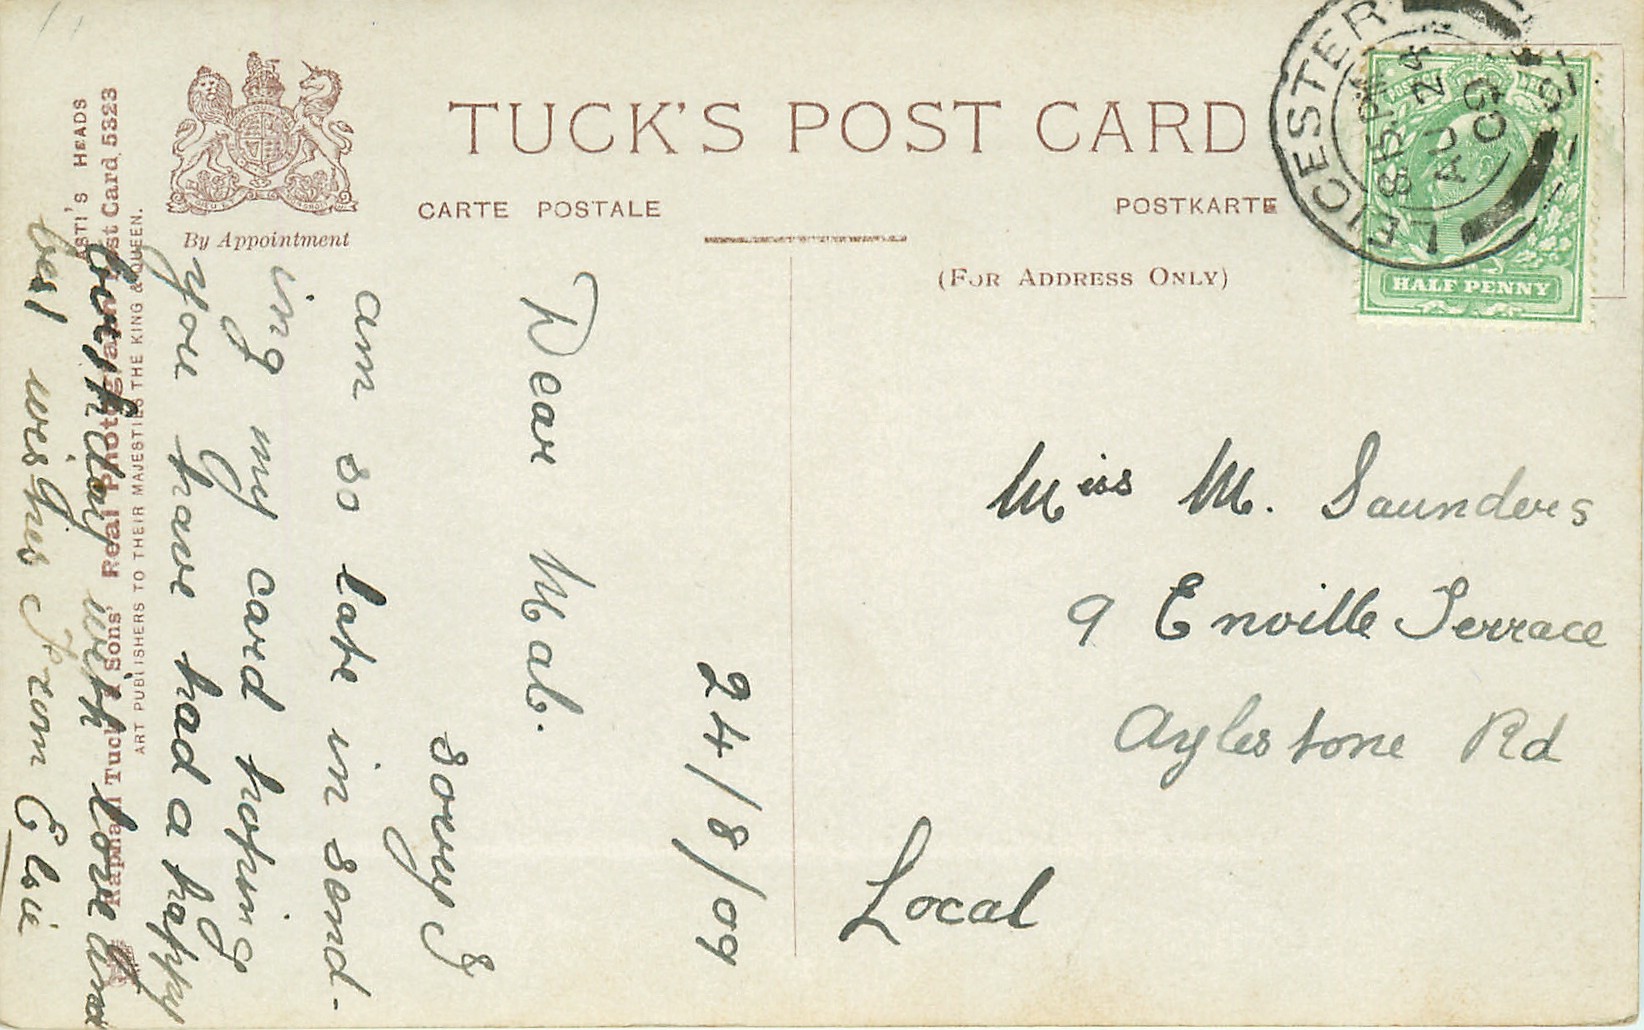 TUCK'S POST CARD
CARTE POSTALE
POSTKARTE
By Appointment
(FOR ADDRESS ONLY)
LEICESTER
8.PM
AU 24
09
HALF PENNY
24/8/09
Dear Mab.
sorry I
am so late in send-
ing my card hoping
you have had a happy
birthday with love and
best wishes From Elsie
Miss M. Saunders
9 Enville Terrace
Aylestone Rd
Local
ASTI'S HEADS
Raphael Tuck & Sons' Real Photograph Post Card 5323
ART PUBLISHERS TO THEIR MAJESTIES THE KING & QUEEN.